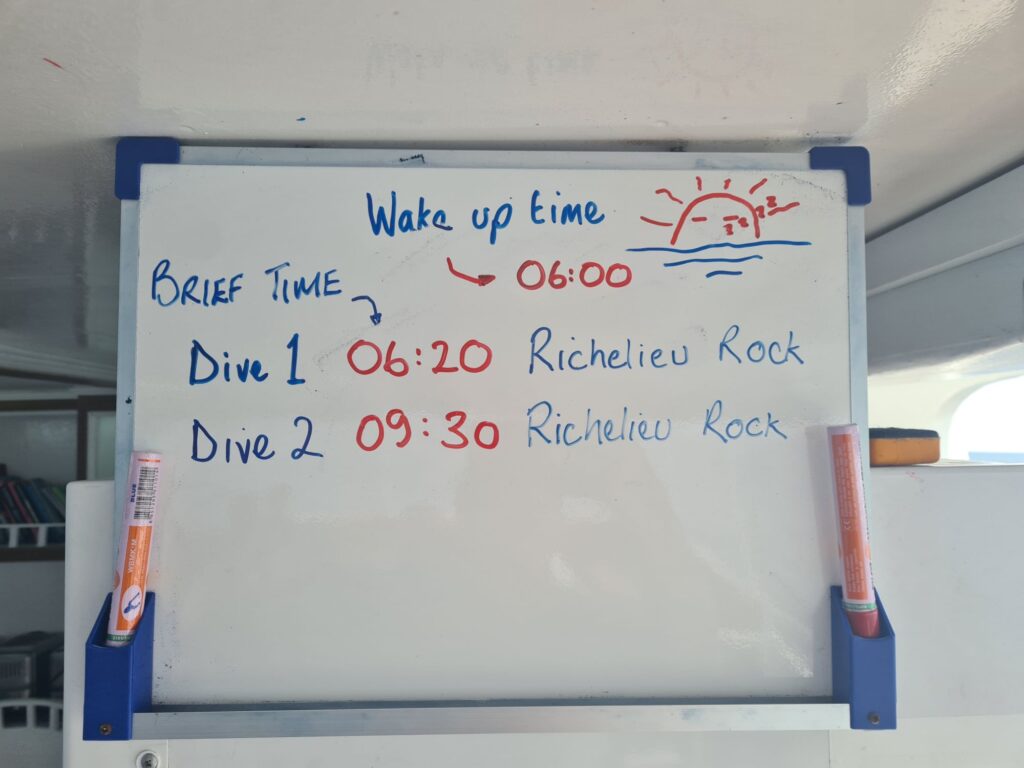 Wake up time
06:00
BRIEF TIME
Dive 1 06:20 Richelieu Rock
Dive 2 09:30 Richelieu Rock
BLUE
WBMK-M